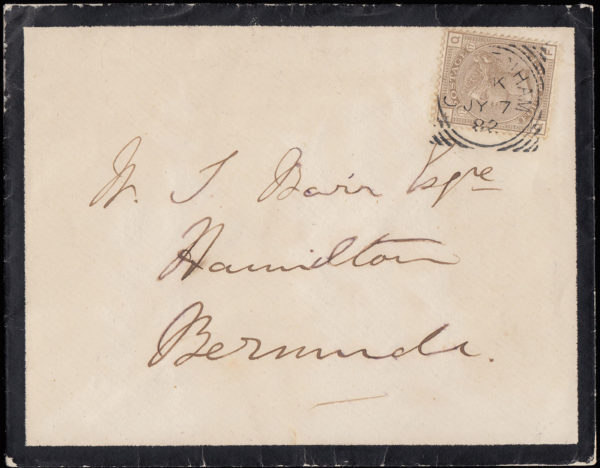 W. S. Barr Esqre
Hamilton
Bermuda.
POSTAGE
HAM
K
JY 7
82